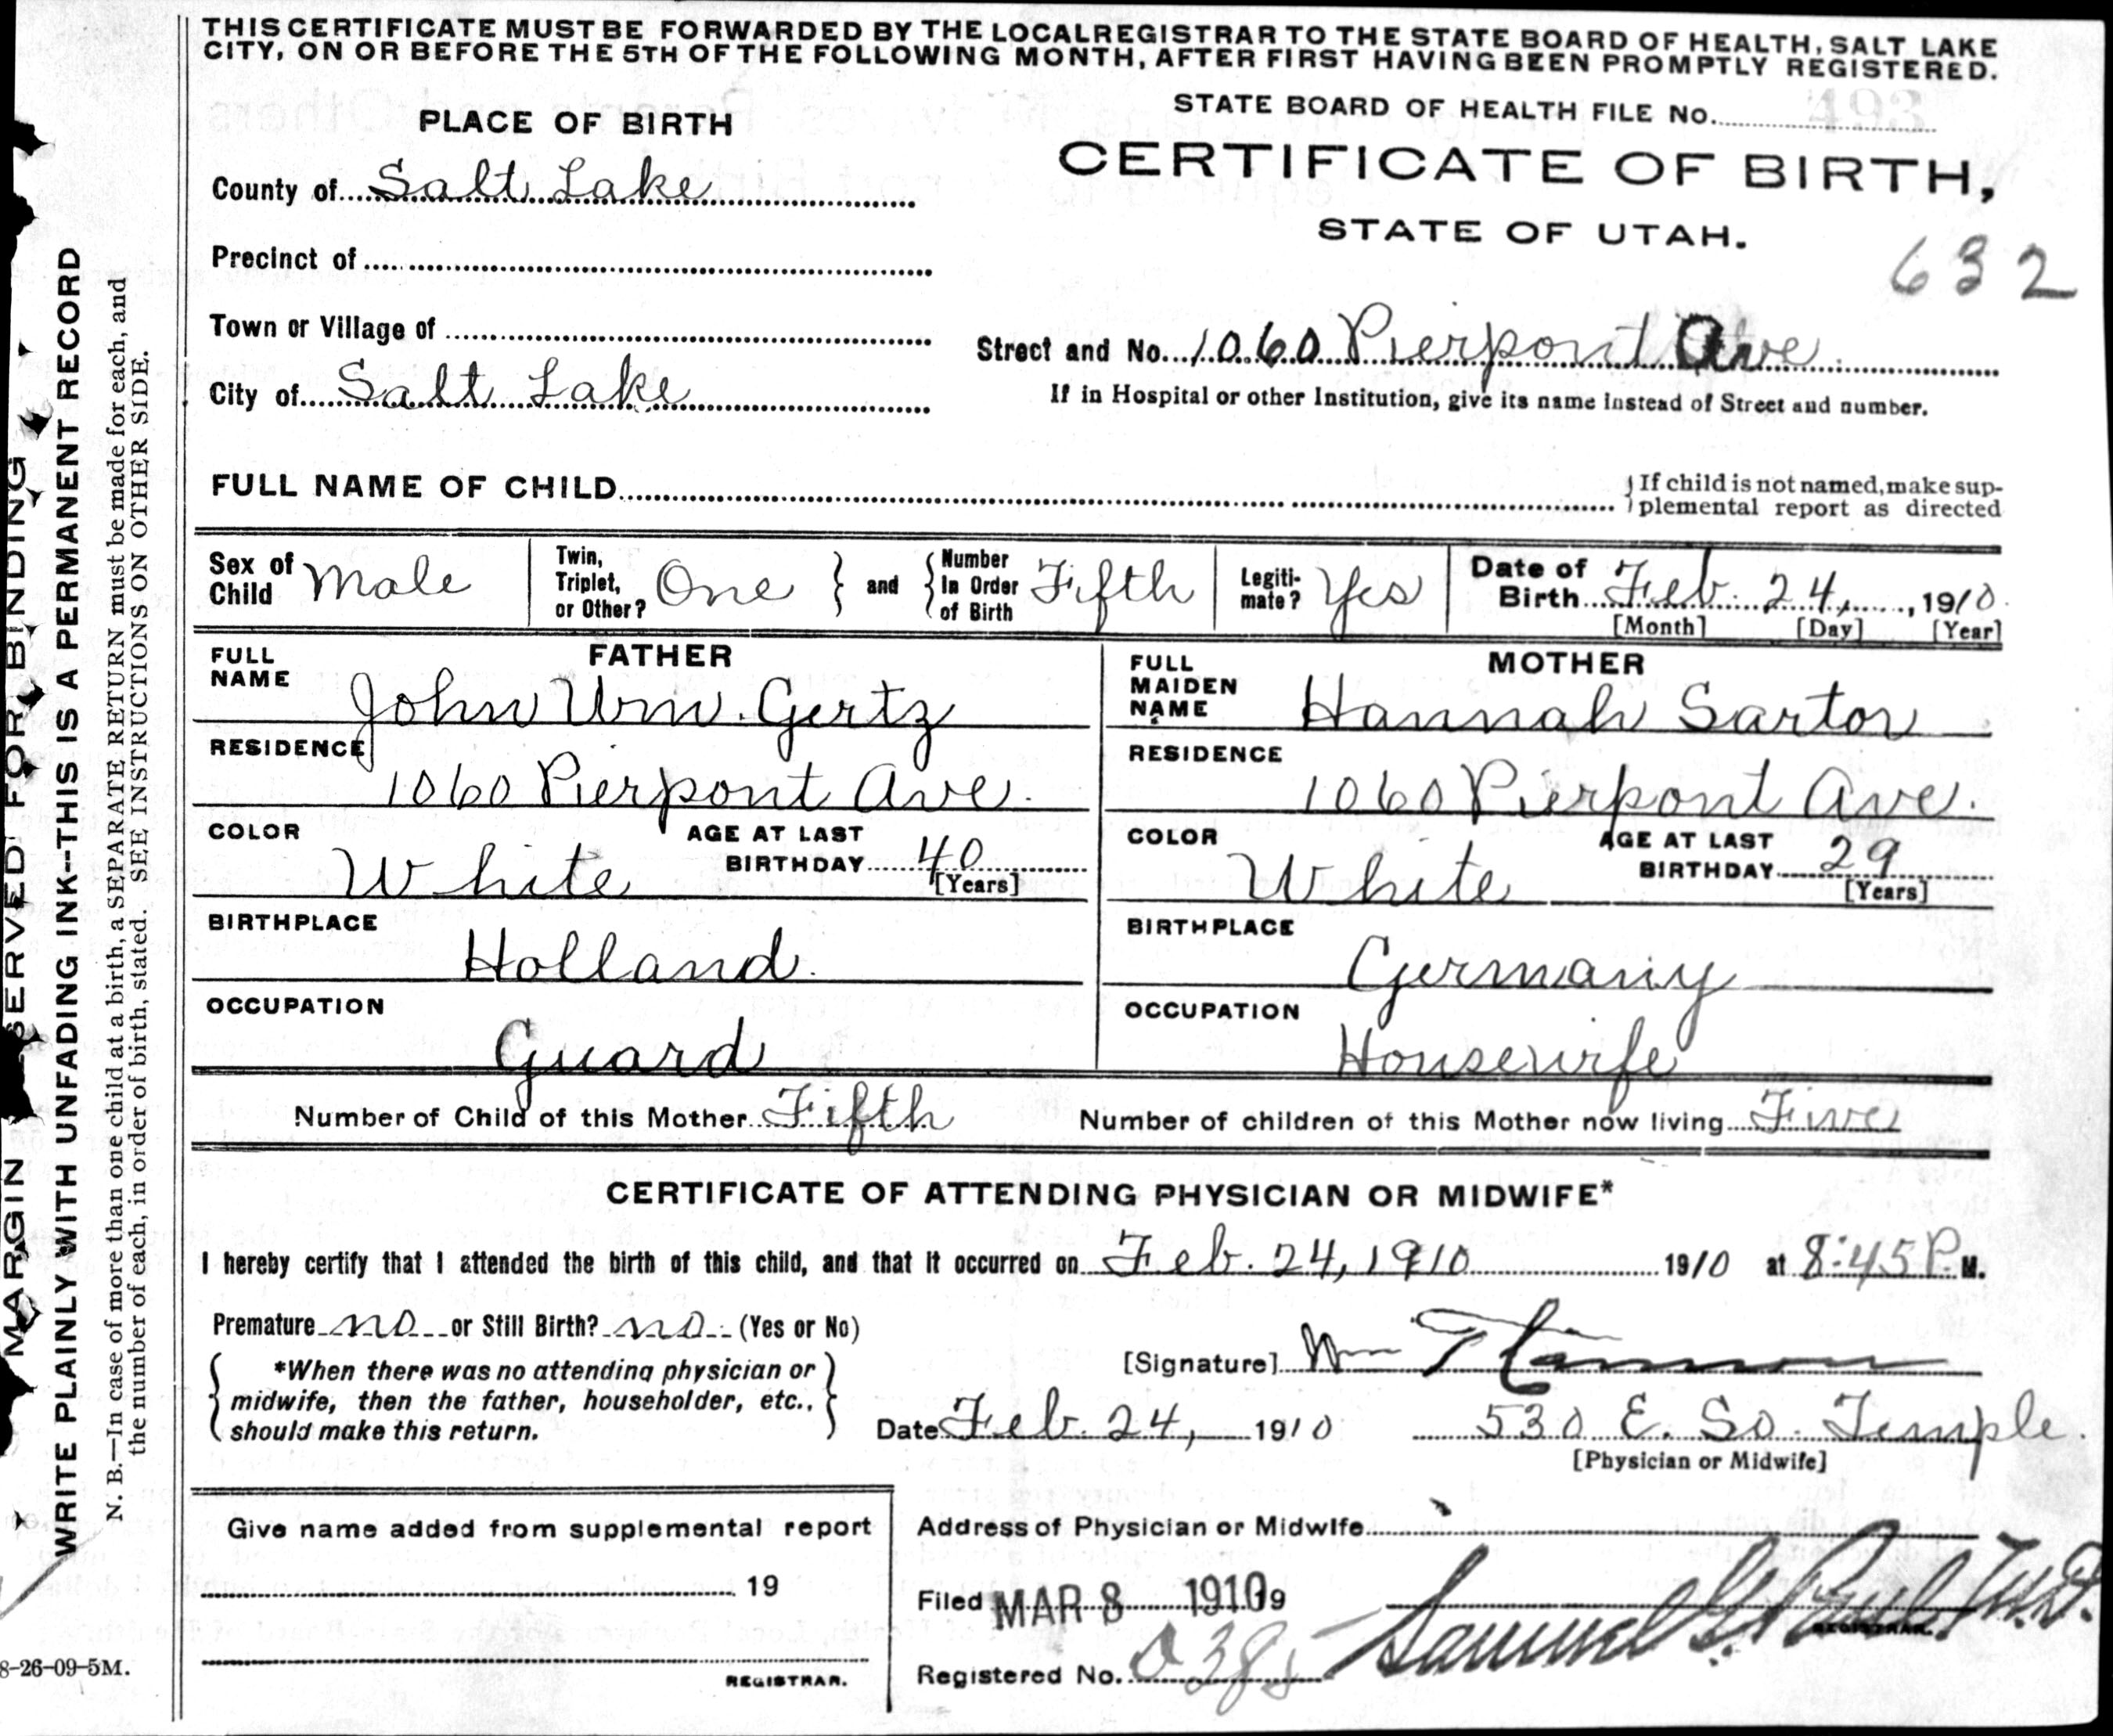 THIS CERTIFICATE MUST BE FORWARDED BY THE LOCAL REGISTRAR TO THE STATE BOARD OF HEALTH, SALT LAKE
CITY, ON OR BEFORE THE 5TH OF THE FOLLOWING MONTH, AFTER FIRST HAVING BEEN PROMPTLY REGISTERED.
PLACE OF BIRTH
STATE BOARD OF HEALTH FILE No. 493
CERTIFICATE OF BIRTH,
STATE OF UTAH.
632
County of Salt Lake
Precinct of
Town or Village of
City of Salt Lake
Street and No. 1060 Pierpont Ave.
If in Hospital or other Institution, give its name instead of Street and number.
FULL NAME OF CHILD
If child is not named, make sup-
plemental report as directed
Sex of Child Male
Twin, Triplet, or Other? One and Number In Order of Birth Fifth
Legiti-mate? Yes
Date of Birth Feb. 24, 1910
[Month] [Day] [Year]
FATHER
FULL NAME John Wm. Gertz
RESIDENCE 1060 Pierpont Ave.
COLOR White AGE AT LAST BIRTHDAY 40 [Years]
BIRTHPLACE Holland.
OCCUPATION Guard
MOTHER
FULL MAIDEN NAME Hannah Sartor
RESIDENCE 1060 Pierpont Ave.
COLOR White AGE AT LAST BIRTHDAY 29 [Years]
BIRTHPLACE Germany
OCCUPATION Housewife
Number of Child of this Mother Fifth Number of children of this Mother now living Five
CERTIFICATE OF ATTENDING PHYSICIAN OR MIDWIFE*
I hereby certify that I attended the birth of this child, and that it occurred on Feb. 24, 1910 1910 at 8:45 P. M.
Premature no or Still Birth? no (Yes or No)
*When there was no attending physician or
midwife, then the father, householder, etc.,
should make this return.
[Signature] Wm
Date Feb. 24, 1910 530 E. So. Temple.
[Physician or Midwife]
Give name added from supplemental report
19
REGISTRAR.
Address of Physician or Midwife
Filed MAR 8 1910 19 Samuel G. Paul M.D.
REGISTRAR.
Registered No.
8-26-09-5M.
MARGIN RESERVED FOR BINDING
WRITE PLAINLY WITH UNFADING INK--THIS IS A PERMANENT RECORD
N. B.—In case of more than one child at a birth, a SEPARATE RETURN must be made for each, and
the number of each, in order of birth, stated. SEE INSTRUCTIONS ON OTHER SIDE.